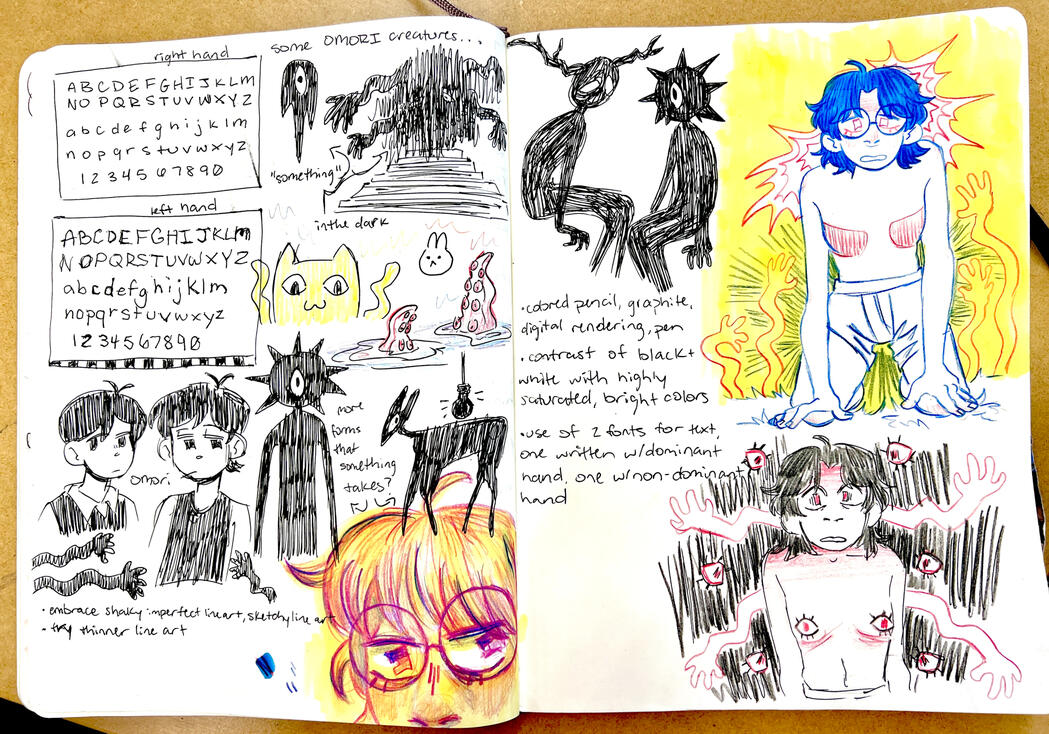 right hand
ABCDEFGHIJKLM
NOPQRSTUVWXYZ
abcdefghijklm
nopqrstuvwxyz
1234567890
left hand
ABCDEFGHIJKLM
NOPQRSTUVWXYZ
abcdefghijklm
nopqrstuvwxyz
1234567890
some OMORI creatures...
"something"
in the dark
omori
more
forms
that
something
takes?
• embrace shaky imperfect line art, sketchy line art
• try thinner line art
• colored pencil, graphite,
digital rendering, pen
• contrast of black +
white with highly
saturated, bright colors
• use of 2 fonts for text,
one written w/dominant
hand, one w/non-dominant
hand